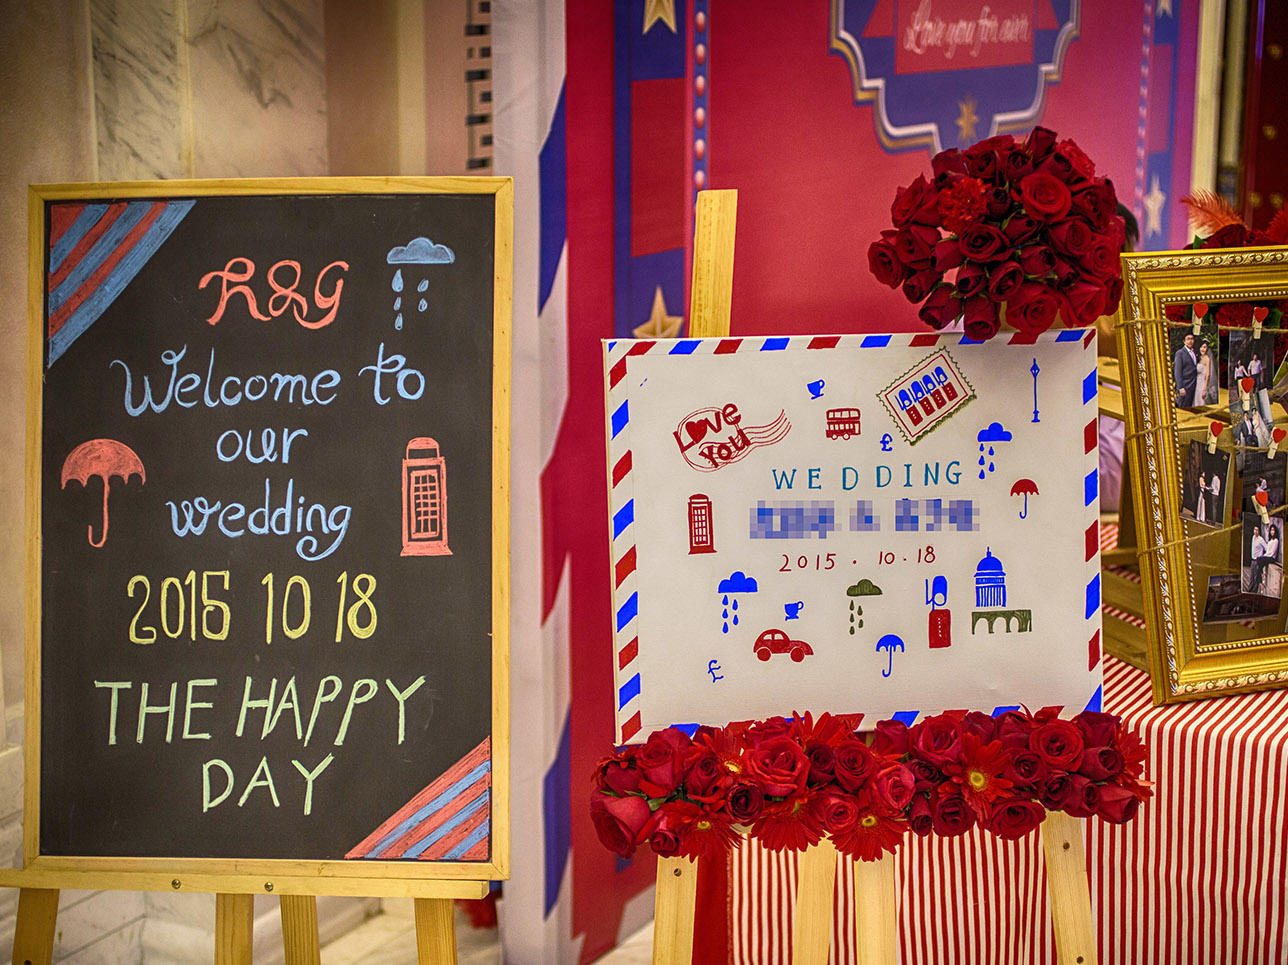 R&G
Welcome to
our
wedding
2015 10 18
THE HAPPY
DAY
Love you for ever
LOVE
YOU
£
WEDDING
2015. 10.18
£